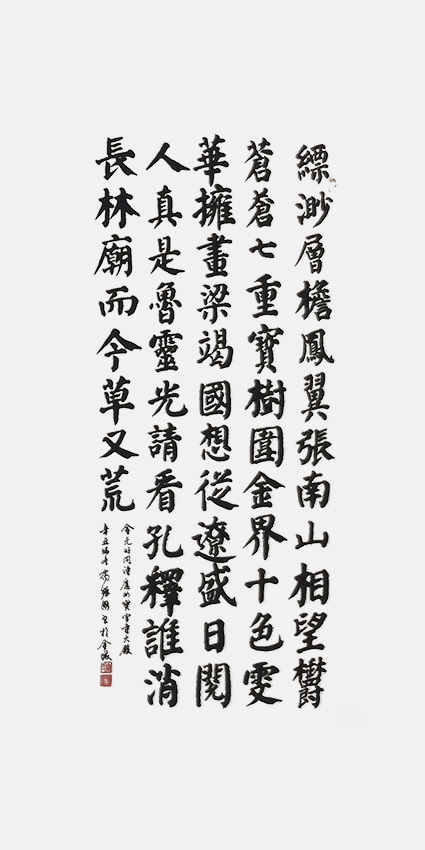 縹渺層檐鳳翼張南山相望鬱
蒼蒼七重寶樹圍金界十色雯
華擁畫梁竭國想從遼盛日閱
人真是魯靈光請看孔釋誰消
長林廟而今草又荒
金元好問
辛丑